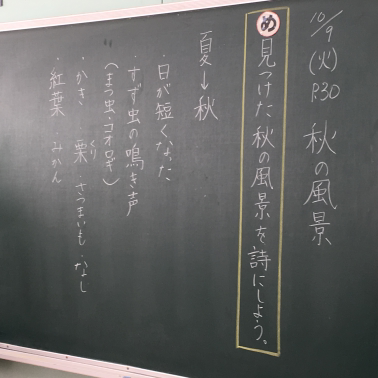 10/9(火) P.30 秋の風景
め 見つけた秋の風景を詩にしよう。
夏→秋
・日が短くなった
・すず虫の鳴き声
(まつ虫・コオロギ)
・かき ・栗 くり ・さつまいも ・なし
・紅葉 みかん